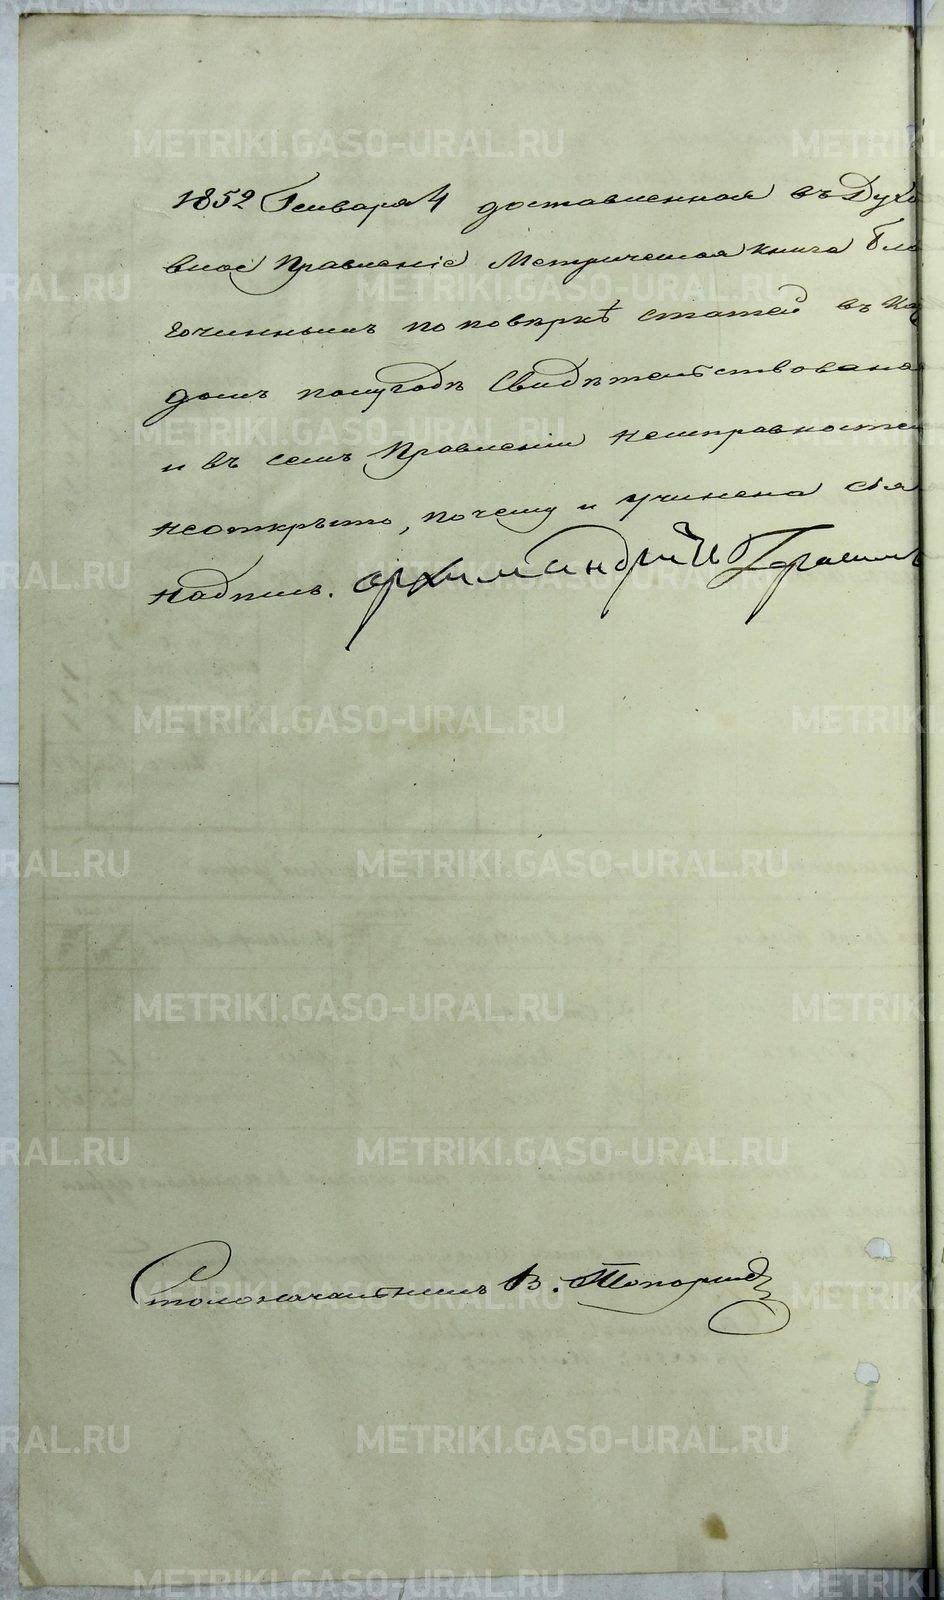 1852 Генваря 4 доставленная въ Духо
вное Правленіе Метрическая книга бла
гочиннымъ по повѣркѣ статей въ каж
домъ полугодѣ Свидѣтельствована
и въ семъ Правленіи неисправностей
неоткрыто, почему и учинена сія
надпись. Архимандритъ Герасимъ
Столоначальникъ В. Топорковъ
METRIKI.GASO-URAL.RU